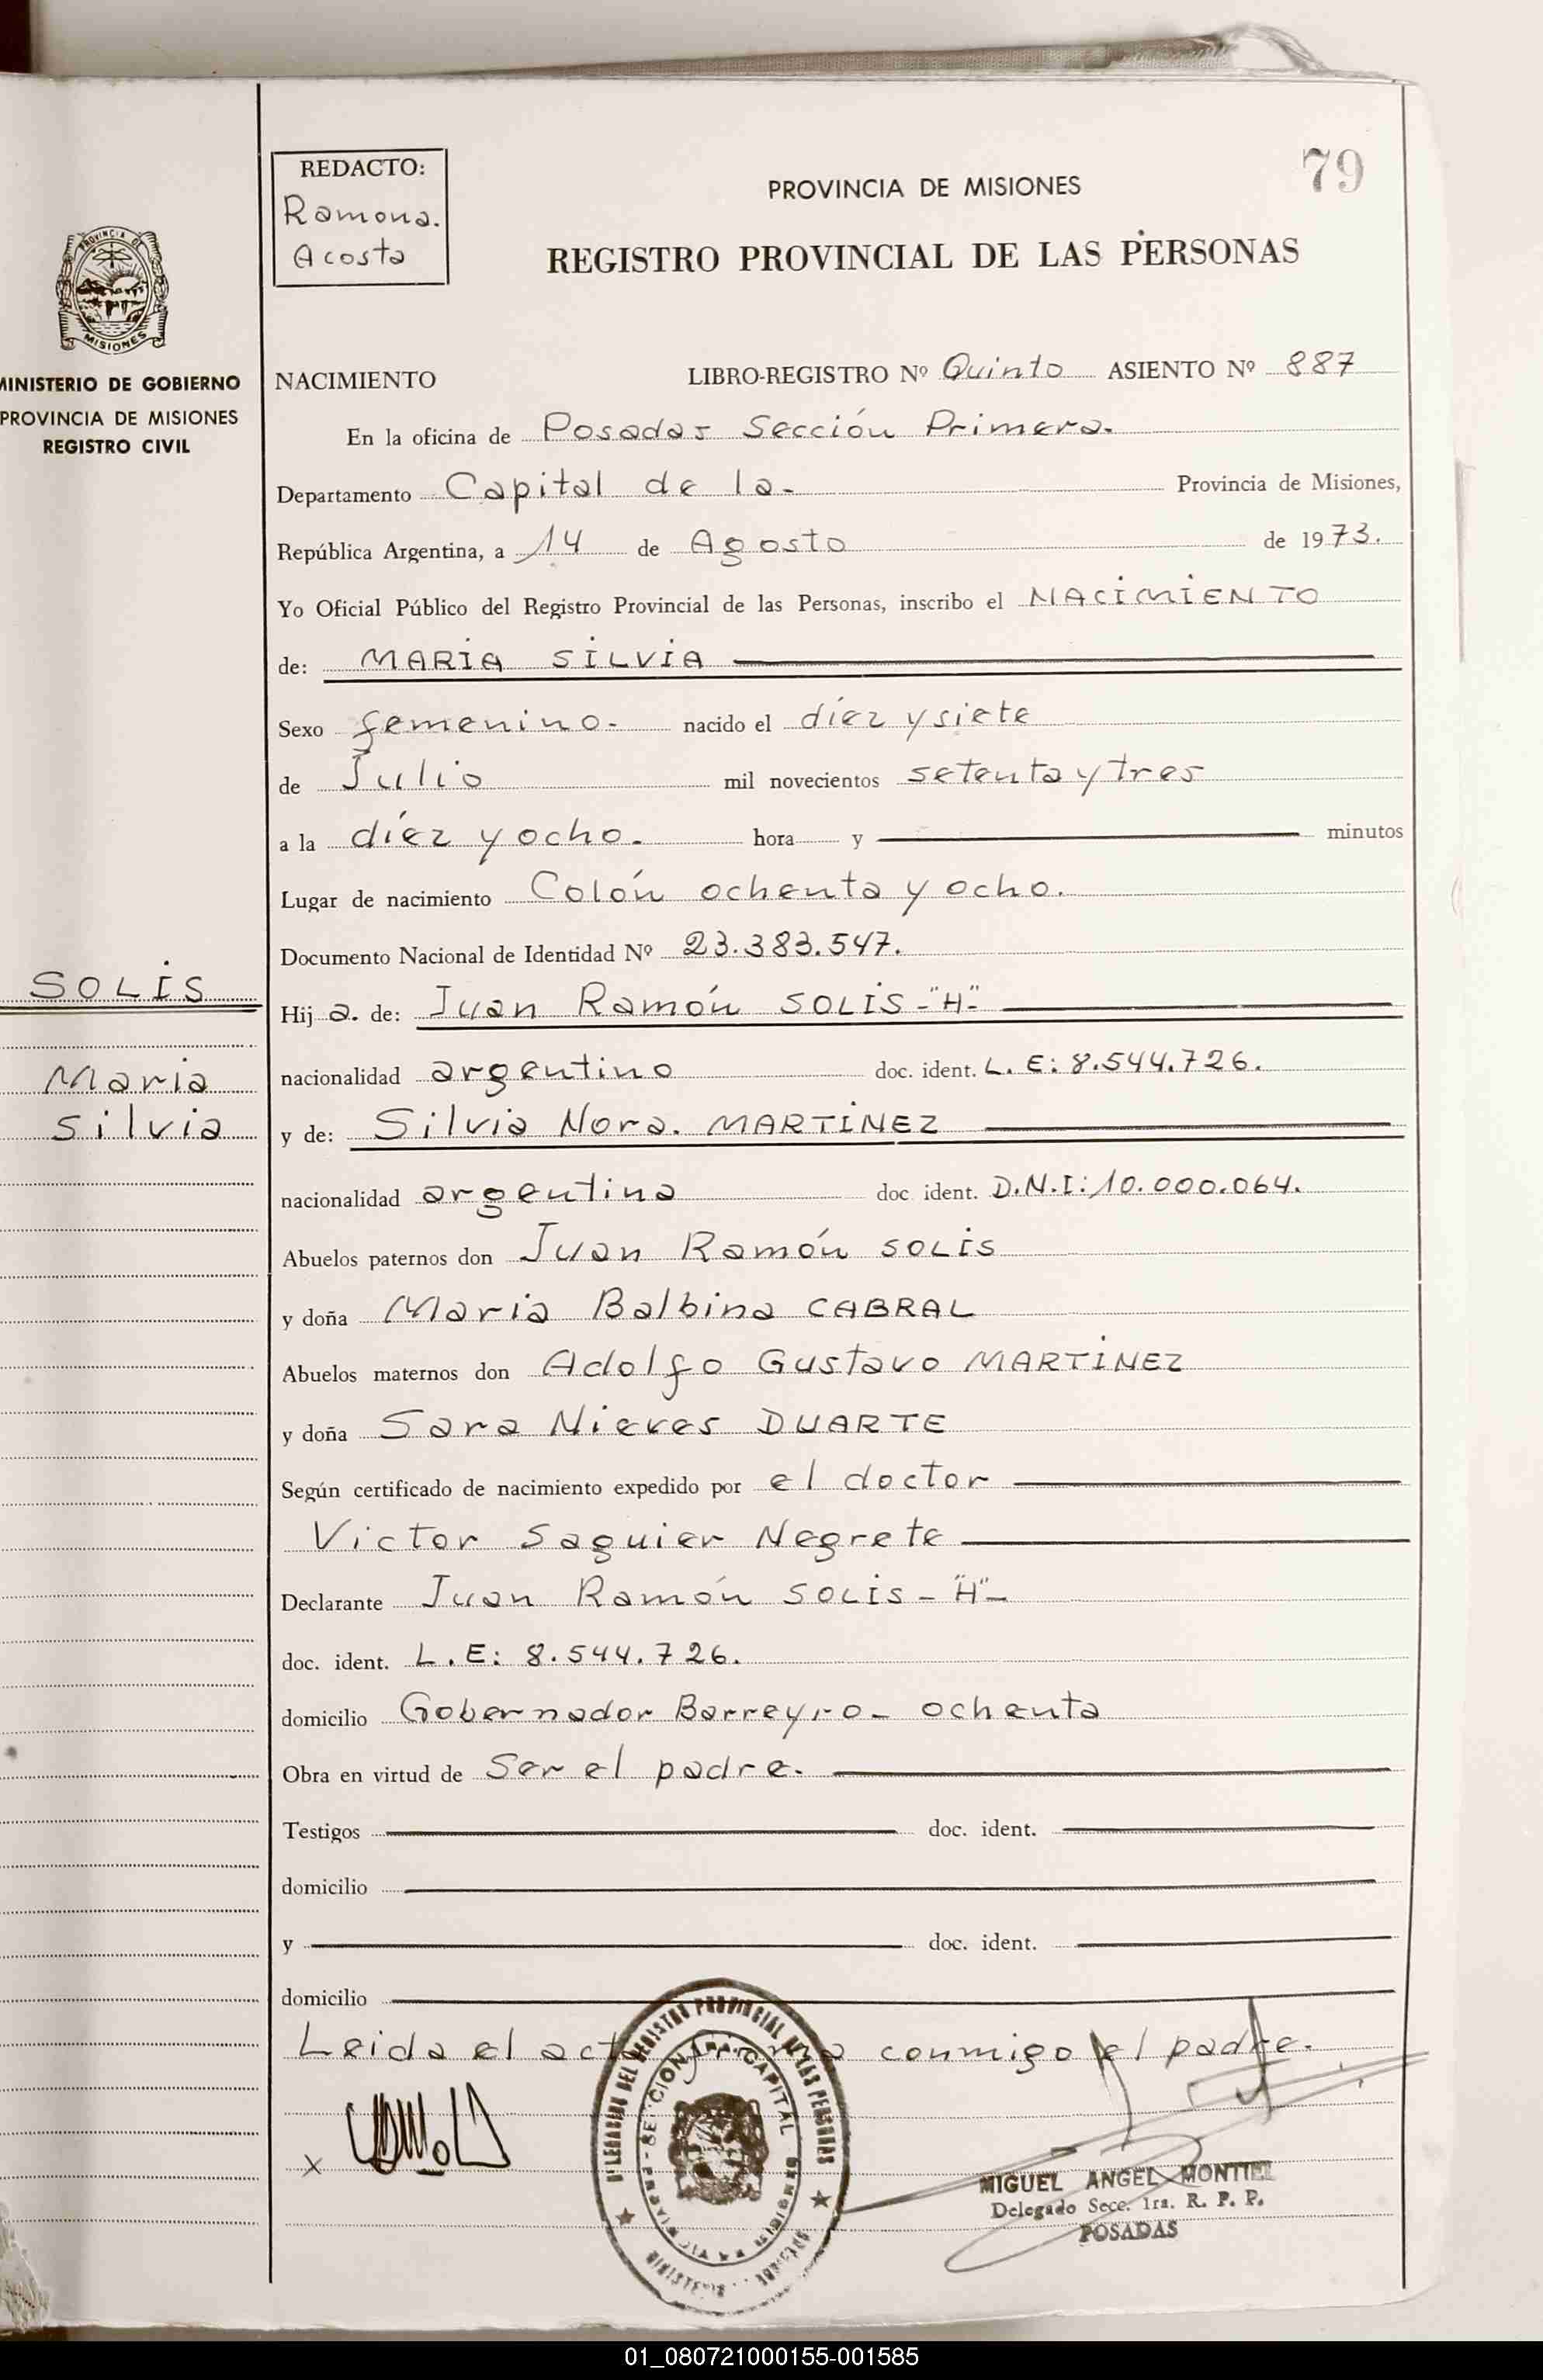 79
REDACTO:
Ramona.
Acosta
PROVINCIA DE MISIONES
REGISTRO PROVINCIAL DE LAS PERSONAS
PROVINCIA DE
MISIONES
MINISTERIO DE GOBIERNO
PROVINCIA DE MISIONES
REGISTRO CIVIL
SOLIS
Maria
Silvia
NACIMIENTO LIBRO-REGISTRO Nº Quinto ASIENTO Nº 887
En la oficina de Posadas Sección Primera.
Departamento Capital de la- Provincia de Misiones,
República Argentina, a 14 de Agosto de 1973.
Yo Oficial Público del Registro Provincial de las Personas, inscribo el NACIMIENTO
de: MARIA SILVIA
Sexo femenino- nacido el díez y siete
de Julio mil novecientos setenta y tres
a la díez y ocho. hora y minutos
Lugar de nacimiento Colón ochenta y ocho.
Documento Nacional de Identidad Nº 23.383.547.
Hij a. de: Juan Ramón SOLIS-"H"-
nacionalidad argentino doc. ident. L. E: 8.544.726.
y de: Silvia Nora. MARTINEZ
nacionalidad argentina doc ident. D.N.I: 10.000.064.
Abuelos paternos don Juan Ramón SOLIS
y doña Maria Balbina CABRAL
Abuelos maternos don Adolfo Gustavo MARTINEZ
y doña Sara Nieves DUARTE
Según certificado de nacimiento expedido por el doctor
Victor Saguier Negrete
Declarante Juan Ramón SOLIS-"H"-
doc. ident. L.E: 8.544.726.
domicilio Gobernador Barreyro- ochenta
Obra en virtud de Ser el padre.
Testigos doc. ident.
domicilio
y doc. ident.
domicilio
Leida el conmigo el padre.
x
DEL REGISTRO PROVINCIAL DE LAS PERSONAS
CAPITAL
MIGUEL ANGEL MONTIEL
Delegado Secc. 1ra. R. P. P.
POSADAS
01_080721000155-001585